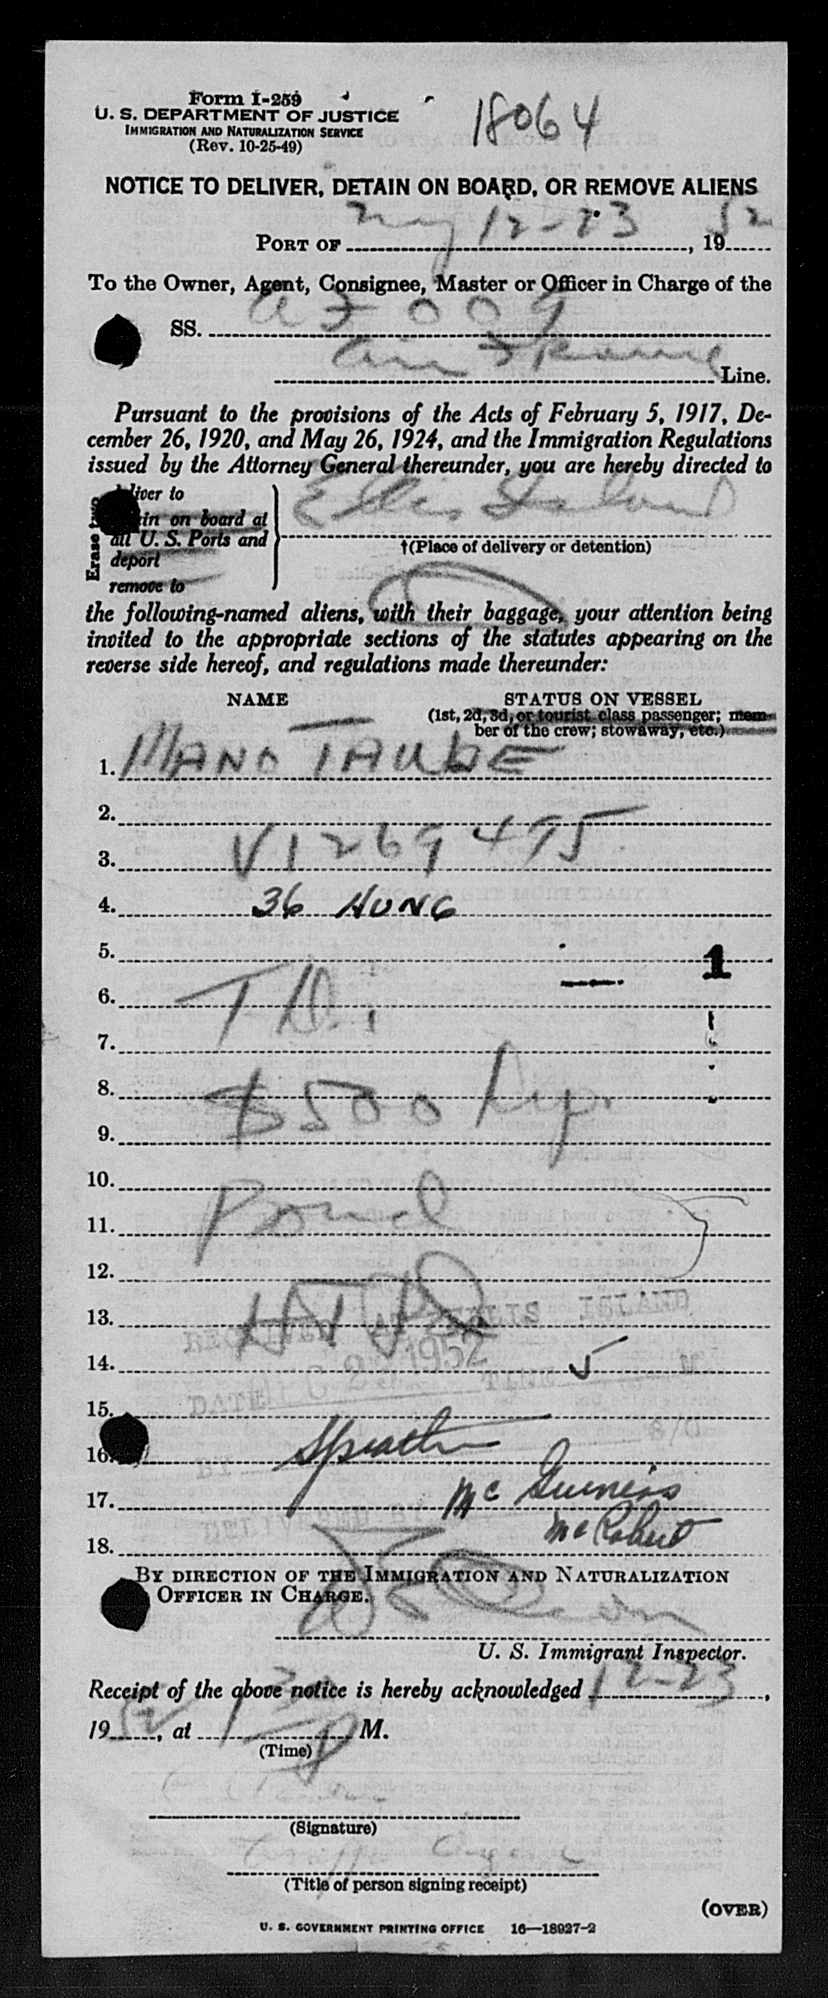 Form I-259
U. S. DEPARTMENT OF JUSTICE
IMMIGRATION AND NATURALIZATION SERVICE
(Rev. 10-25-49)
18064
NOTICE TO DELIVER, DETAIN ON BOARD, OR REMOVE ALIENS
PORT OF NY 12-23, 1952
To the Owner, Agent, Consignee, Master or Officer in Charge of the
SS. AF 009
Air France Line.
Pursuant to the provisions of the Acts of February 5, 1917, De-
cember 26, 1920, and May 26, 1924, and the Immigration Regulations
issued by the Attorney General thereunder, you are hereby directed to
Erase two
liver to
in on board at
all U. S. Ports and
deport
remove to
Ellis Island
†(Place of delivery or detention)
the following-named aliens, with their baggage, your attention being
invited to the appropriate sections of the statutes appearing on the
reverse side hereof, and regulations made thereunder:
NAME STATUS ON VESSEL
(1st, 2d, 3d, or tourist class passenger; mem-
ber of the crew; stowaway, etc.)
1. MANO TAUBE
2.
3. V1269495
4. 36 HUNG
5. 1
6. T.D.
7.
8. $500 Dep.
9.
10.
11. Bond
12.
13. RECEIVED AT ELLIS ISLAND
14. DATE 23 1952 TIME 5 M
15. S/O
16. BY
17. Mc Guiness
DELIVERED BY
18. McRobert
BY DIRECTION OF THE IMMIGRATION AND NATURALIZATION
OFFICER IN CHARGE.
U. S. Immigrant Inspector.
Receipt of the above notice is hereby acknowledged 12-23,
1952, at 130 P M.
(Time)
(Signature)
Agent
(Title of person signing receipt)
(OVER)
U. S. GOVERNMENT PRINTING OFFICE 16—18927-2